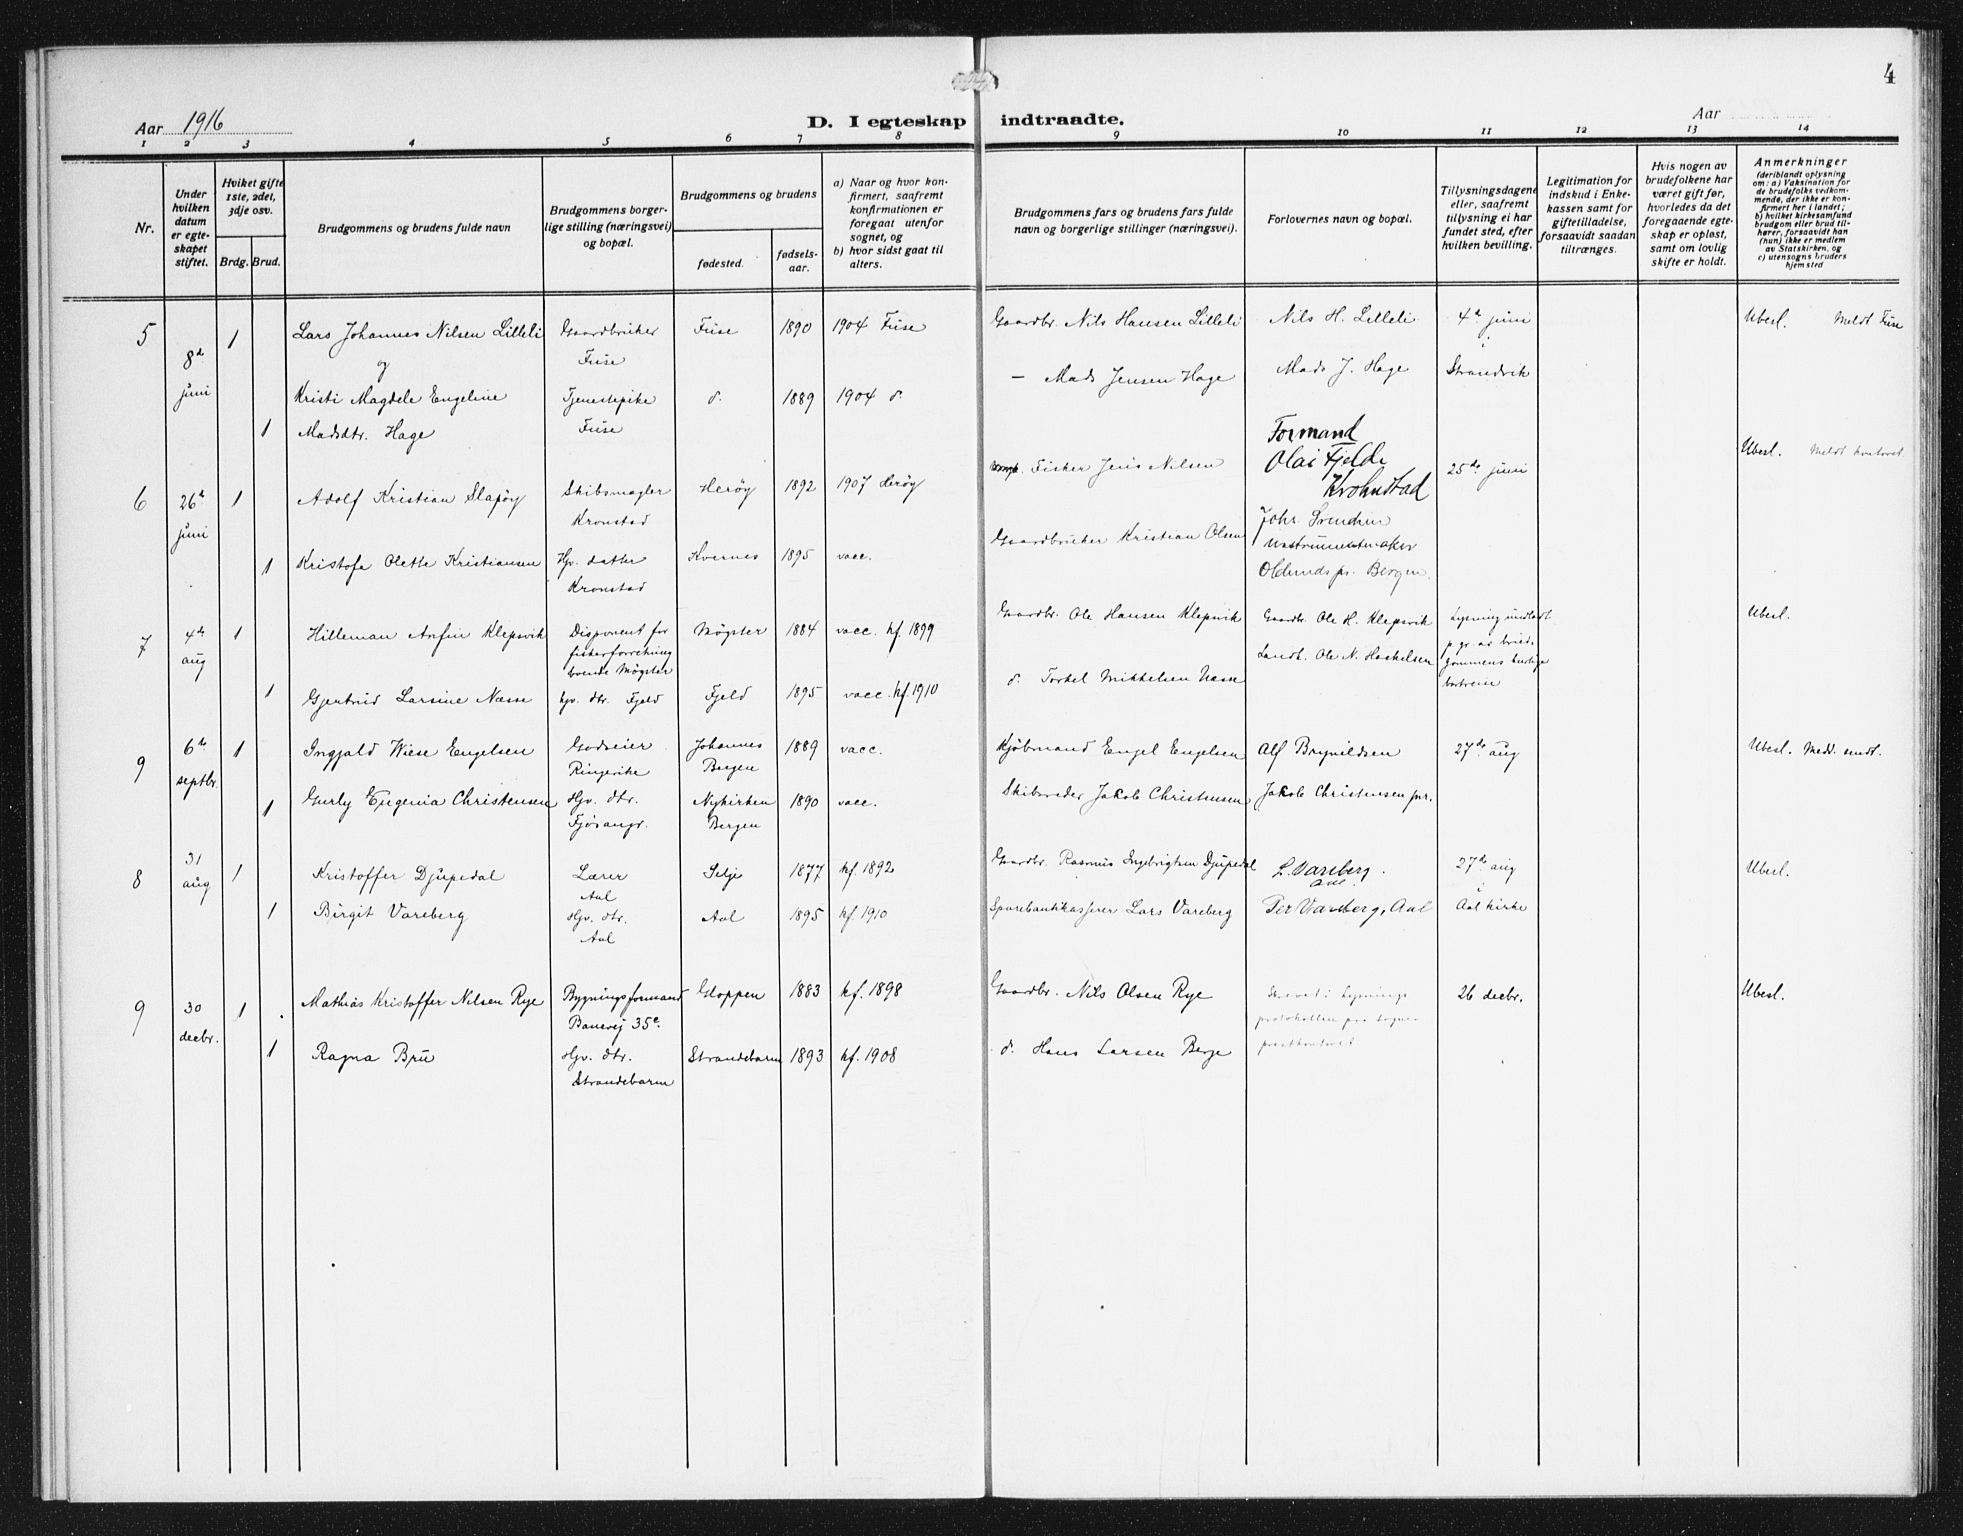 4
Aar 1916
D. I egteskap indtraadte.
Aar
1 2 3 4 5 6 7 8 9 10 11 12 13 14
Nr.
Under
hvilken
datum
er egte-
skapet
stiftet.
Hviket gifte
1ste, 2det,
3dje osv.
Brdg. Brud.
Brudgommens og brudens fulde navn
Brudgommens borger-
lige stilling (næringsvei)
og bopæl.
Brudgommens og brudens
fødested.
fødsels-
aar.
a) Naar og hvor kon-
firmert, saafremt
konfirmationen er
foregaat utenfor
sognet, og
b) hvor sidst gaat til
alters.
Brudgommens fars og brudens fars fulde
navn og borgerlige stillinger (næringsvei).
Forlovernes navn og bopæl.
Tillysningsdagene
eller, saafremt
tillysning ei har
fundet sted, efter
hvilken bevilling.
Legitimation for
indskud i Enke-
kassen samt for
giftetilladelse,
forsaavidt saadan
tiltrænges.
Hvis nogen av
brudefolkene har
været gift før,
hvorledes da det
foregaaende egte-
skap er opløst,
samt om lovlig
skifte er holdt.
Anmerkninger
(deriblandt oplysning
om: a) Vaksination for
de brudefolks vedkom-
mende, der ikke er kon-
firmert her i landet;
b) hvilket kirkesamfund
brudgom eller brud til-
hører, forsaavidt han
(hun) ikke er medlem
av Statskirken, og
c) utensogns bruders
hjemsted
5 8de juni 1 Lars Johannes Nilsen Lilleli Gaardbruker Fuse 1890 1904 Fuse Gaardbr. Nils Hansen Lilleli Nils H. Lilleli 4de juni Ubesl. Meldt Fuse
og Fuse i
— Mads Jensen Hage Mads J. Hage Strandvik
Kristi Magdele Engeline Tjenestepike d. 1889 1904 d.
1 Madsdtr. Hage Fuse
6 26de juni 1 Adolf Kristian Slapøy Skibsmægler Herøy 1892 1907 Herøy Fisker Jens Nilsen Formand 25de juni Ubesl. Meldt
Kronstad Olai Fjelde
Krohnstad
1 Kristofa Olette Kristiansen Hjv. datter Kvernes 1895 vacc. Gaardbruker Kristian Olsen Johr. Svendsen
Kronstad instrumentmaker
Bergen.
7 4de aug 1 Hilleman Anfin Klepsvik Disponent for Møgster 1884 vacc. kf. 1899 Gaardbr. Ole Hansen Klepsvik Gaardbr. Ole H. Klepsvik Lysning undladt Ubesl.
fiskeforretning p. gr. av brud-
boende Møgster gommens hurtige
bortreise
1 Gjertrud Larsine Næsse hjv. dtr. Fjeld Fjeld 1895 vacc. kf. 1910 d. Torkel Mikkelsen Landh. Ole N.
9 6te septbr. 1 Ingjald Wiese Engelsen Godseier Johannes 1889 vacc. Kjøbmand Engel Engelsen Alf Brynildsen 27de aug Ubesl. Medd. sendt.
Ringerike Bergen
1 Gurly Eugenia Christensen Hjv. dtr. Nykirken 1890 vacc. Skibsreder Jakob Christensen Jakob Christensen jnr.
Fjøsangr. Bergen
8 31 aug 1 Kristoffer Djupedal Lærer Selje 1877 kf. 1892 Gaardbr. Rasmus Ingebrigtsen Djupedal L. Vareberg 27de aug Ubesl.
Aal Aal i
1 Birgit Vareberg Hjv. dtr. Aal 1895 kf. 1910 Sparebankkasserer Lars Vareberg Per Vareberg, Aal Aal kirke
Aal
9 30 decbr. 1 Mathias Kristoffer Nilsen Rye Bygningsformand Gloppen 1883 kf. 1898 Gaardbr. Nils Olsen Rye Skrevet i lysnings- 26 decbr. Ubesl.
Banevej 35c. protokollen paa sogne-
1 Ragna Bru Hjv. dtr. Strandebarm 1893 kf. 1908 d. Hans Larsen Berge prestkontoret
Strandebarm